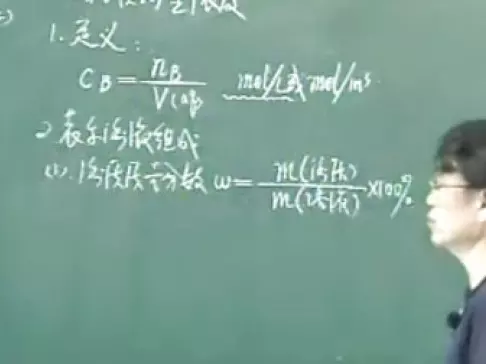 1.定义:
C B = n B / V(aq) mol/L或mol/m³
2.表示溶液组成
(1).溶质质量分数 ω = m(溶质) / m(溶液) ×100%